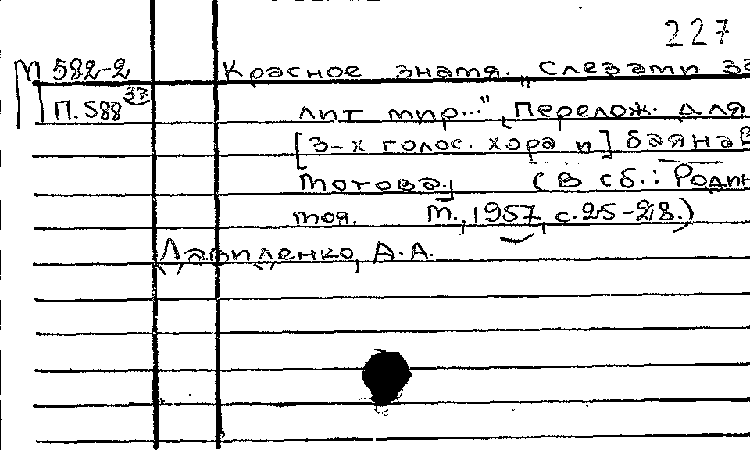 227
М 582-2 Красное знамя. „Слезами за
П. 588 37 лит мир...", Перелож. для
[3-х голос. хора и] баяна В
Мотова] (В сб.: Родин
моя. М., 1957, с. 25-28.)
Даниленко, А.А.